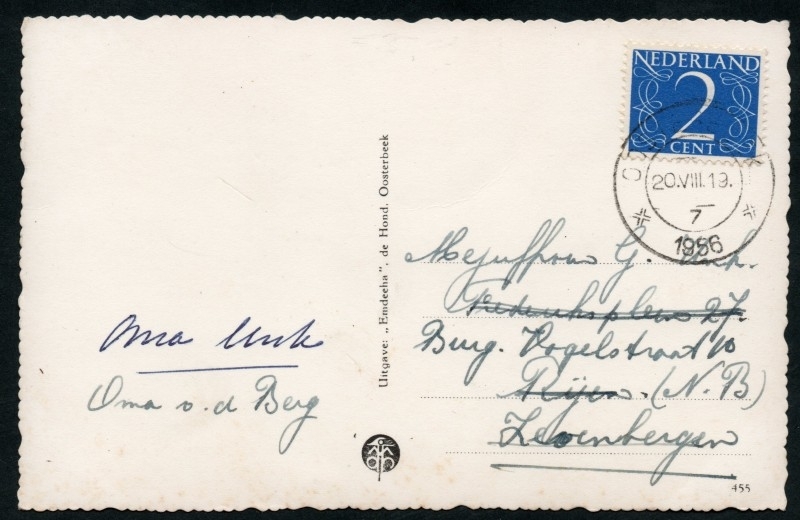 NEDERLAND
2
CENT
20.VIII.19.
7
1956
Uitgave: „Emdeeha", de Hond, Oosterbeek
Mejuffrouw G. Unk.
Frederiksplein 27.
Burg. Vogelstraat 10
Rijen. (N.B)
Zevenbergen
Oma Unk
Oma v.d Berg
455